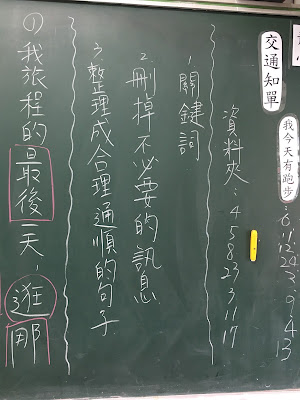 交通知單
我今天有跑步
6 11 12 24 3 9 4 13
資料夾：4 5 8 23 3 11 17
1.關鍵詞
2.刪掉不必要的訊息
3.整理成合理通順的句子
①我旅程的最後一天，逛那